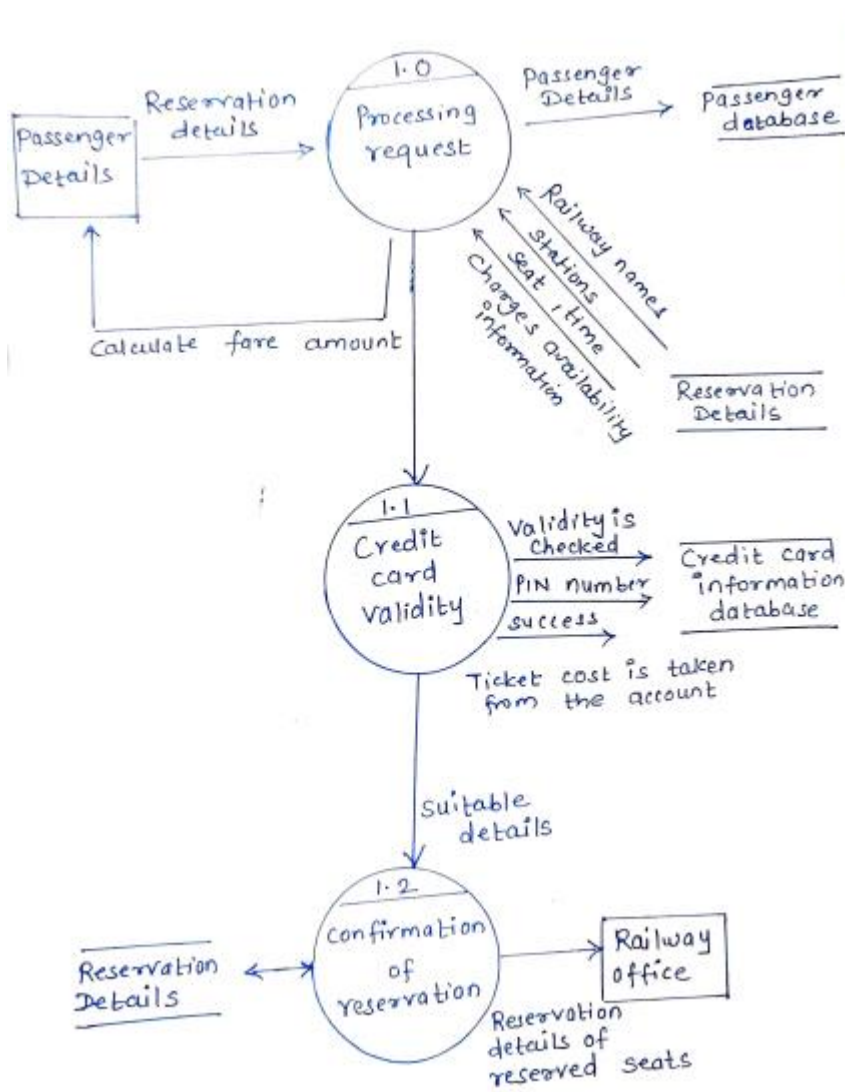 1.0
Processing
request
Reservation
details
Passenger
Details
Passenger
Details
Passenger
database
Railway names
Stations
seat, time
Charges availability
information
Calculate fare amount
Reservation
Details
1.1
Credit
card
validity
Validity is
checked
PIN number
success
Credit card
information
database
Ticket cost is taken
from the account
Suitable
details
1.2
confirmation
of
reservation
Reservation
Details
Railway
office
Reservation
details of
reserved seats